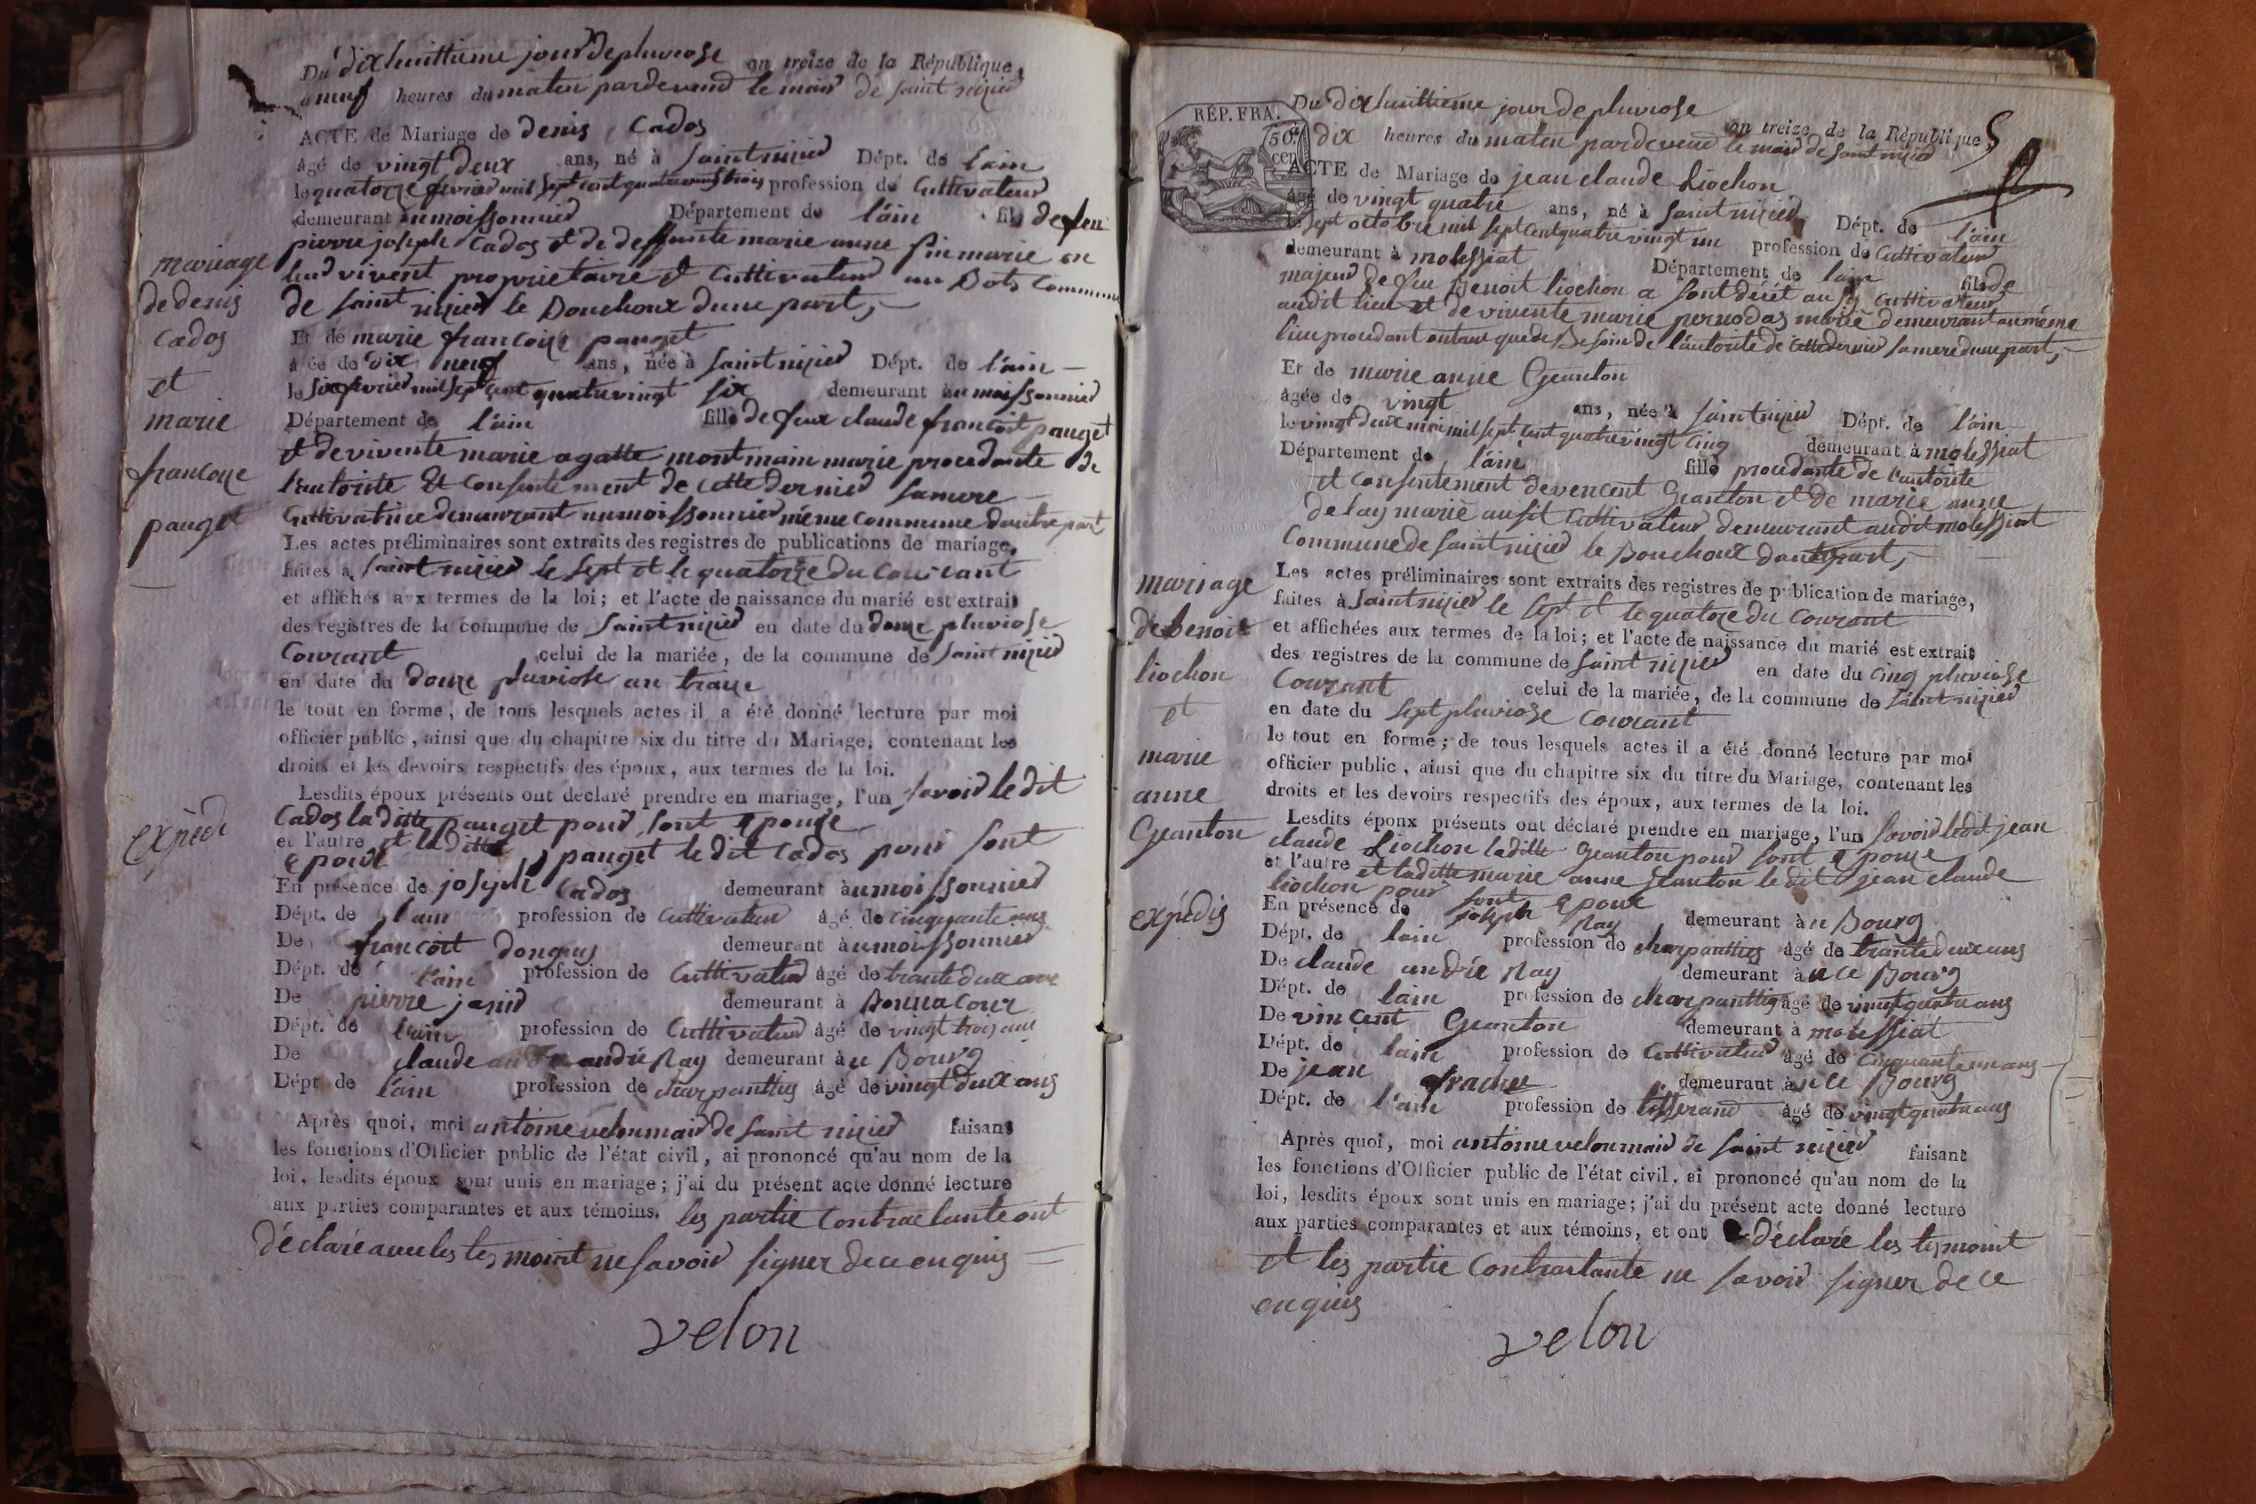 Du dixhuittieme jour de pluviose an treize de la République,
a neuf heures du matin pardevend le maird de saint nizied
ACTE de Mariage de denis Cados
âgé de vingt deux ans, né à saint nizied Dépt. de l'ain
le quatorze fevried mil sept cent quatre vingt trois profession de Cultivateur
demeurant au moissonnied Département de l'ain fils de feu
pierre joseph Cados et de deffunte marie anne marie en
leur vivent proprietaire et Cultivateur au Bots Commune
de saint nizied le Bouchoux dune part,
mariage
de denis
Cados
et
marie
francoise
pauget
Et de marie francoise pauget
âgée de dix neuf ans, née à saint nizied Dépt. de l'ain
le six fevried mil sept cent quatre vingt six demeurant au moissonnied
Département de l'ain fille de feux claude francoit pauget
et de vivente marie agatte montmain marie procedante de
l'autorite et Consentement de cette dernied sa mere
Cultivatrice demeurant au moissonnied même Commune dautre part
Les actes préliminaires sont extraits des registres de publications de mariage,
faites à saint nizied le sept et le quatorze du Courant
et affichés aux termes de la loi; et l'acte de naissance du marié est extrait
des registres de la commune de saint nizied en date du douze pluviose
Courant celui de la mariée, de la commune de saint nizied
en date du douze pluviose an traize
le tout en forme; de tous lesquels actes il a été donné lecture par moi
officier public, ainsi que du chapitre six du titre du Mariage, contenant les
droits et les devoirs respectifs des époux, aux termes de la loi.
Lesdits époux présents ont déclaré prendre en mariage, l'un savoir le dit
Cados laditte pauget pour sont epouze
expedi
et l'autre et laditte pauget le dit Cados pour sont
epoux
En présence de joseph Cados demeurant au moissonnied
Dépt. de l'ain profession de Cultivateur âgé de cinquante ans
De francoit dongus demeurant au moissonnied
Dépt. de l'ain profession de Cultivateur âgé de trante deux ans
De pierre janid demeurant à Bonnacour
Dépt. de l'ain profession de Cultivateur âgé de vingt trois ans
De claude andrié Nay demeurant à ce Bourg
Dépt. de l'ain profession de charpanttier âgé de vingt deux ans
Après quoi, moi antoine velon maird de saint nizied faisant
les fonctions d'Officier public de l'état civil, ai prononcé qu'au nom de la
loi, lesdits époux sont unis en mariage; j'ai du présent acte donné lecture
aux parties comparantes et aux témoins. les partie Contractante ont
déclaré avec les tesmoint ne savoir signer de ce enquis
velon
REP. FRA.
50
cen
Du dixhuittieme jour de pluviose
an treize de la République,
dix heures du matin pardevend le maird de saint nizied
5
ACTE de Mariage de jean claude Liochon
âgé de vingt quatre ans, né à saint nizied Dépt. de l'ain
le sept octobre mil sept cent quatre vingt un profession de Cultivateur
demeurant à molessiat Département de l'ain fils de
majeur de feu Benoit liochon a sont décét au sy Cultivateur
audit lieu et de vivente marie pernodas marié demeurant au même
lieu procedant autant que de Besoin de l'autorite de cette dernied sa mere dune part,
Et de marie anne Geanton
âgée de vingt ans, née à saint nizied Dépt. de l'ain
le vingt deux mai mil sept cent quatre vingt cinq demeurant à molessiat
Département de l'ain fille procedante de l'autorite
et consentement de vencent Geanton et de marie anne
delay marié ausit Cultivateur demeurant audit molessiat
Commune de saint nizied le Bouchoux dautre part,
mariage
de Benoit
liochon
et
marie
anne
Geanton
Les actes préliminaires sont extraits des registres de publication de mariage,
faites à saint nizied le sept et le quatorze du Courant
et affichées aux termes de la loi; et l'acte de naissance du marié est extrait
des registres de la commune de saint nizied en date du cinq pluviose
Courant celui de la mariée, de la commune de saint nizied
en date du sept pluviose Courant
le tout en forme; de tous lesquels actes il a été donné lecture par moi
officier public, ainsi que du chapitre six du titre du Mariage, contenant les
droits et les devoirs respectifs des époux, aux termes de la loi.
Lesdits époux présents ont déclaré prendre en mariage, l'un savoir ledit jean
claude Liochon laditte Geanton pour sont epouze
et l'autre et laditte marie anne Geanton le dit jean claude
liochon pour sont epoux
expédis
En présence de joseph Nay demeurant à ce Bourg
Dépt. de l'ain profession de charpanttier âgé de trante deux ans
De claude andrié Nay demeurant à ce Bourg
Dépt. de l'ain profession de charpanttier âgé de vingt quatre ans
De vincent Geanton demeurant à molessiat
Dépt. de l'ain profession de Cultivateur âgé de cinquante un ans
De jean demeurant à ce Bourg
Dépt. de l'ain profession de tisserand âgé de vingt quatre ans
Après quoi, moi antoine velon maird de saint nizied faisant
les fonctions d'Officier public de l'état civil, ai prononcé qu'au nom de la
loi, lesdits époux sont unis en mariage; j'ai du présent acte donné lecture
aux parties comparantes et aux témoins, et ont déclaré les tesmoint
et les partie Contractante ne savoir signer de ce
enquis
velon